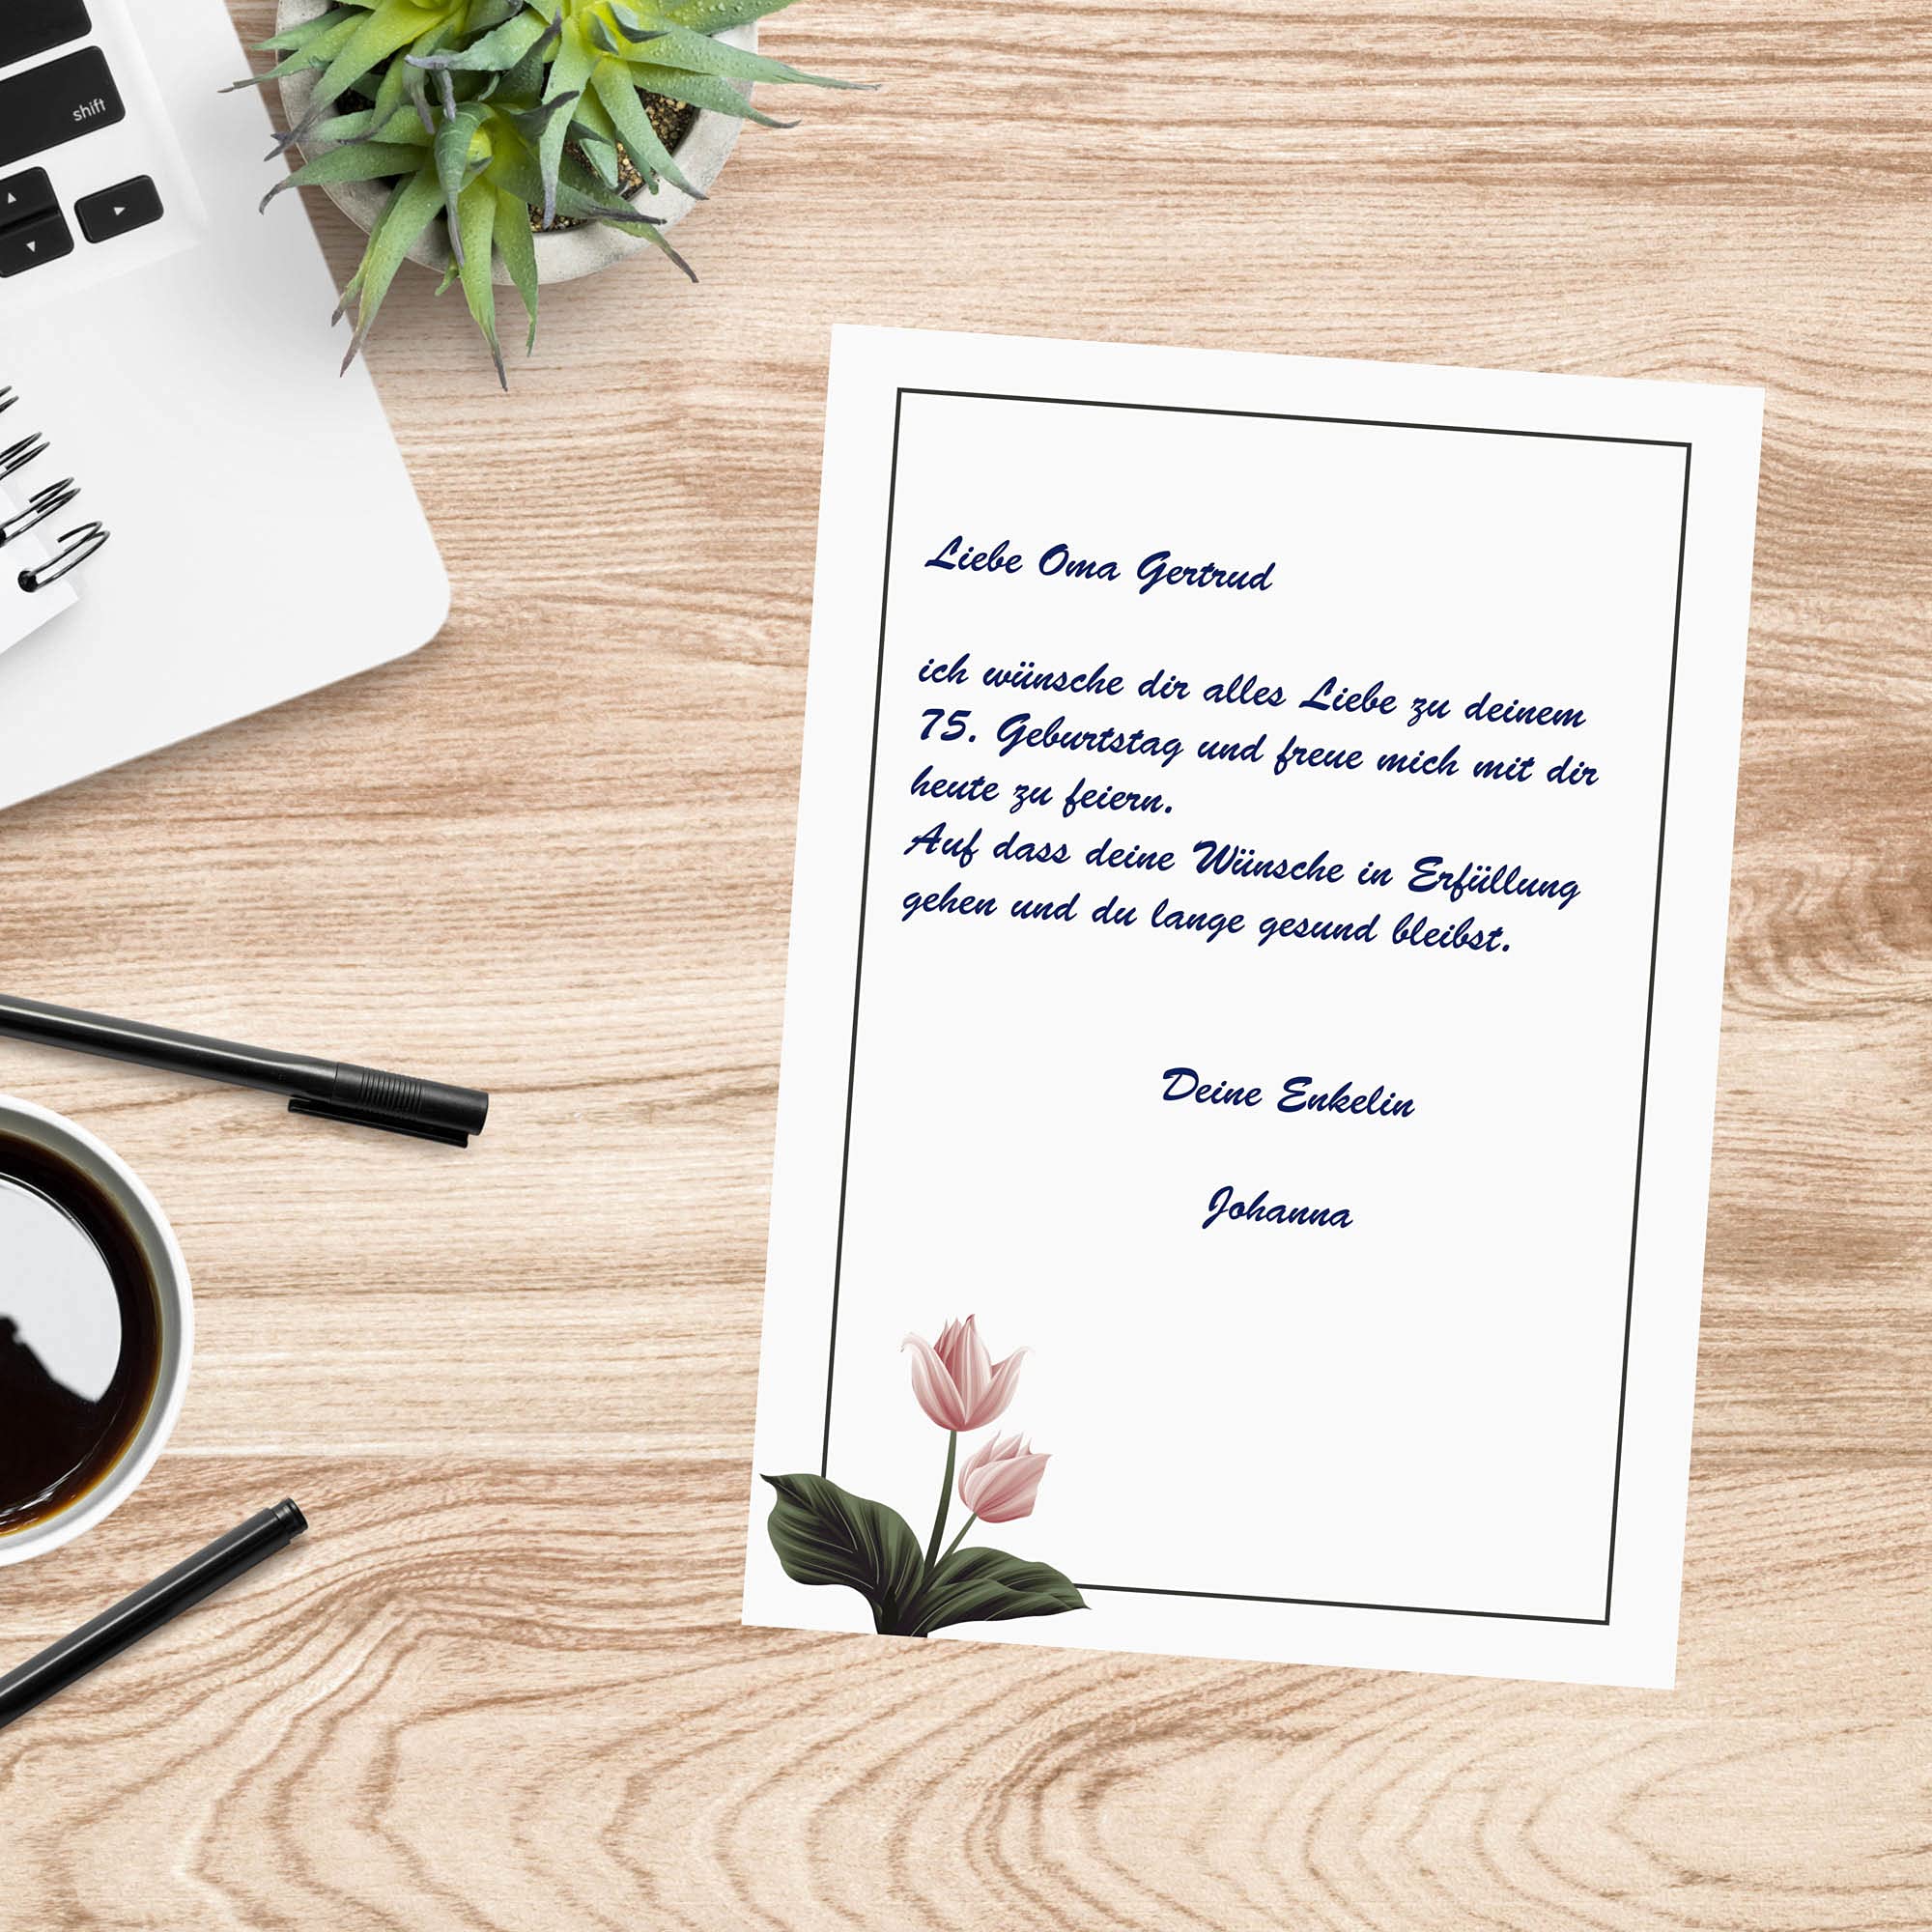 shift
Liebe Oma Gertrud
ich wünsche dir alles Liebe zu deinem
75. Geburtstag und freue mich mit dir
heute zu feiern.
Auf dass deine Wünsche in Erfüllung
gehen und du lange gesund bleibst.
Deine Enkelin
Johanna